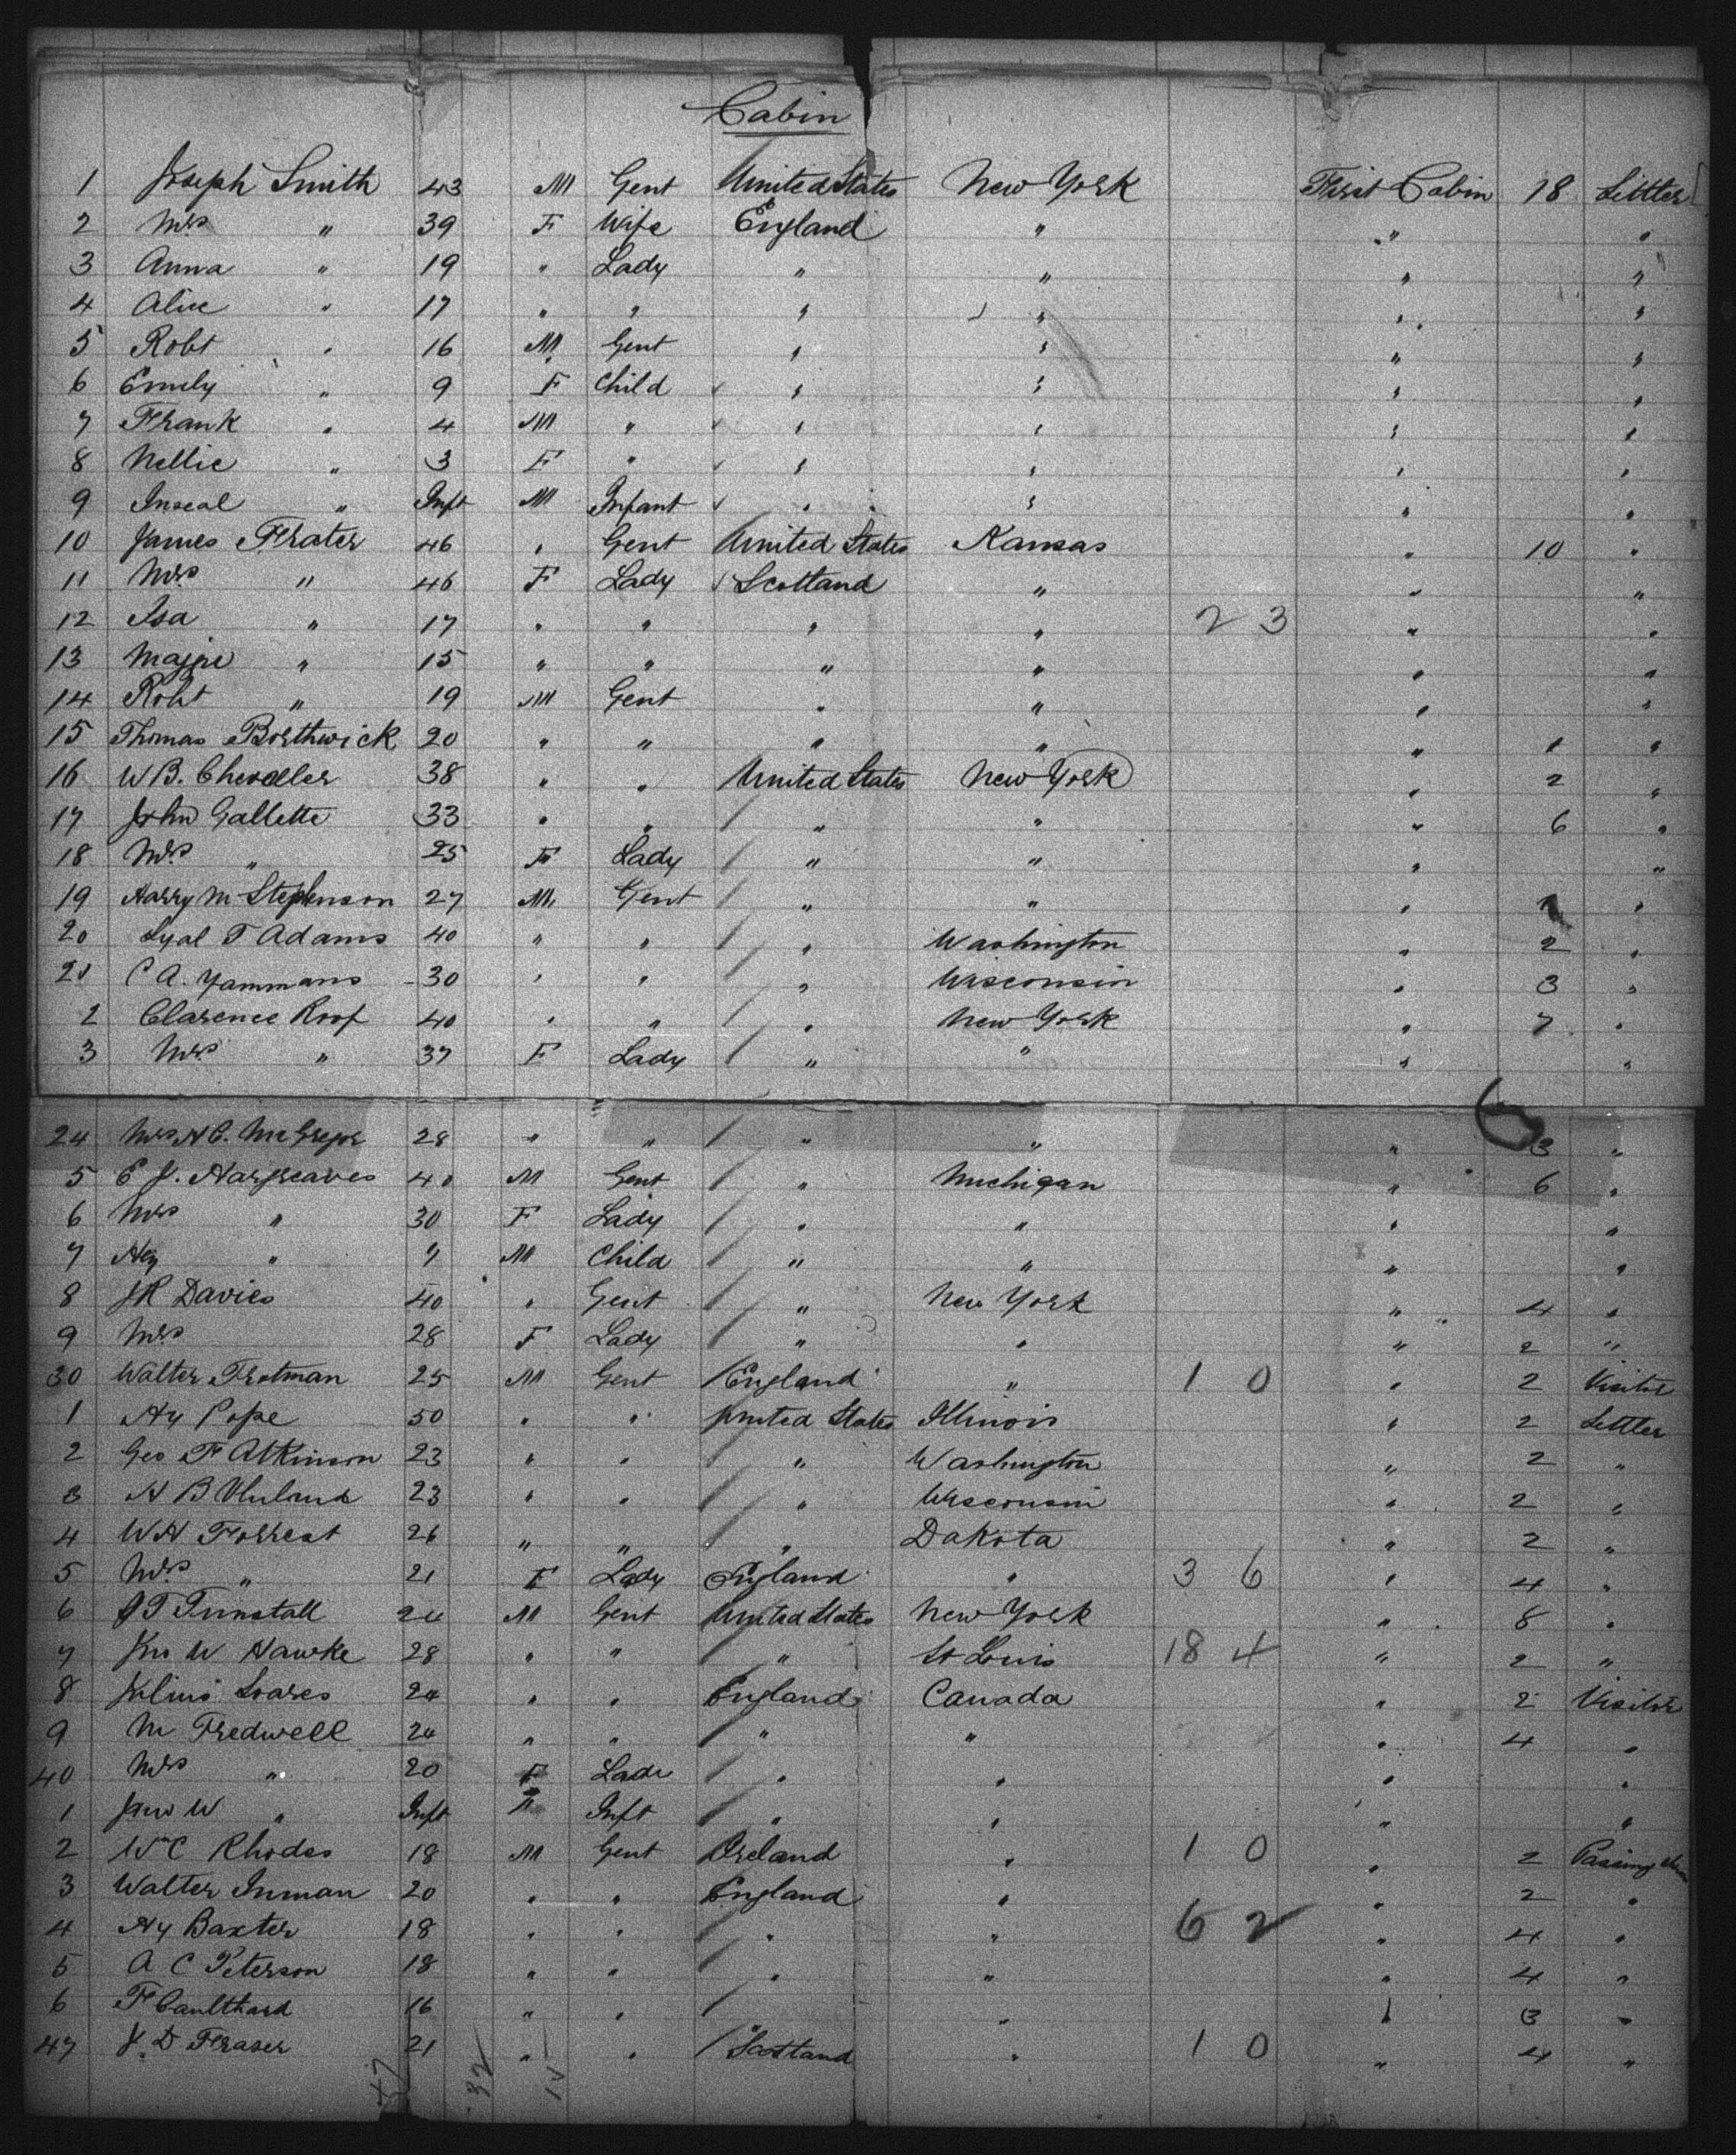 Cabin
1 Joseph Smith 43 M Gent United States New York First Cabin 18 Settler
2 Mrs " 39 F Wife England " " "
3 Anna " 19 " Lady " " " "
4 Alice " 17 " " " " " "
5 Robt " 16 M Gent " " " "
6 Emily " 9 F Child " " " "
7 Frank " 4 M " " " " "
8 Nellie " 3 F " " " " "
9 " Inft M Infant " " " "
10 James Frater 46 " Gent United States Kansas " 10 "
11 Mrs " 46 F Lady Scotland " " "
12 Isa " 17 " " " " 2 3 " "
13 " 15 " " " " " "
14 Robt " 19 M Gent " " " "
15 Thomas Borthwick 20 " " " " " 1 "
16 W B. 38 " " United States New York " 2 "
17 John Gallette 33 " " " " " 6 "
18 Mrs " 25 F Lady " " " "
19 Harry M Stephenson 27 M Gent " " " 1 "
20 Lyal T Adams 40 " " " Washington " 2 "
21 C A. Yammans 30 " " " Wisconsin " 3 "
2 Clarence Roof 40 " " " New York " 7 "
3 Mrs " 37 F Lady " " " "
6
24 Mrs H C. McGregor 28 " " " " " 3 "
5 E J. Hargreaves 40 M Gent " Michigan " 6 "
6 Mrs " 30 F Lady " " " "
7 Hy " 7 M Child " " " "
8 J R Davies 40 " Gent " New York " 4 "
9 Mrs 28 F Lady " " " 2 "
30 Walter Trotman 25 M Gent England " 1 0 " 2 Visitor
1 Hy Pope 50 " " United States Illinois " 2 Settler
2 Geo F Atkinson 23 " " " Washington " 2 "
3 H B 23 " " " Wisconsin " 2 "
4 W H Forrest 26 " " " Dakota " 2 "
5 Mrs " 21 F Lady England " 3 6 " 4 "
6 J T Tunstall 24 M Gent United States New York " 8 "
7 Jno W Hawke 28 " " " St Louis 18 4 " 2 "
8 Julius Soares 24 " " England Canada " 2 Visitor
9 M Tredwell 24 " " " " " 4 "
40 Mrs " 20 F Lade " " " "
1 W " Inft " Inft " " " "
2 W C Rhodes 18 M Gent Ireland " 1 0 " 2 Passing
3 Walter Inman 20 " " England " " 2 "
4 Hy Baxter 18 " " " " 6 2 " 4 "
5 A C Peterson 18 " " " " " 4 "
6 F Caulthard 16 " " " " " 3 "
47 J. D Fraser 21 " " Scotland " 1 0 " 4 "
47 32 15